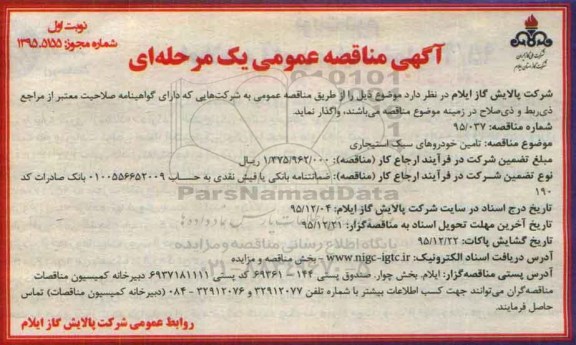 نوبت اول
شماره مجوز: ۱۳۹۵.۵۱۵۵
شرکت ملی گاز ایران
شرکت پالایش گاز ایلام
آگهی مناقصه عمومی یک مرحله‌ای
شرکت پالایش گاز ایلام در نظر دارد موضوع ذیل را از طریق مناقصه عمومی به شرکت‌هایی که دارای گواهینامه صلاحیت معتبر از مراجع
ذی‌ربط و ذی‌صلاح در زمینه موضوع مناقصه می‌باشند، واگذار نماید.
شماره مناقصه: ۹۵/۰۳۷
موضوع مناقصه: تامین خودروهای سبک استیجاری
مبلغ تضمین شرکت در فرآیند ارجاع کار (مناقصه): ۱/۳۷۵/۹۶۲/۰۰۰ ریال
نوع تضمین شرکت در فرآیند ارجاع کار (مناقصه): ضمانتنامه بانکی یا فیش نقدی به حساب ۰۱۰۰۵۵۶۶۵۲۰۰۹ بانک صادرات کد
۱۹۰
تاریخ درج اسناد در سایت شرکت پالایش گاز ایلام: ۹۵/۱۲/۰۴
تاریخ آخرین مهلت تحویل اسناد به مناقصه‌گزار: ۹۵/۱۲/۲۱
تاریخ گشایش پاکات: ۹۵/۱۲/۲۲
آدرس دریافت اسناد الکترونیک: www.nigc-igtc.ir - بخش مناقصه و مزایده
آدرس پستی مناقصه‌گزار: ایلام. بخش چوار. صندوق پستی ۱۴۴ - ۶۹۳۶۱ کد پستی ۶۹۳۷۱۸۱۱۱۱ دبیرخانه کمیسیون مناقصات
مناقصه‌گران می‌توانند جهت کسب اطلاعات بیشتر با شماره تلفن ۳۲۹۱۲۰۷۷ و ۳۲۹۱۲۰۷۶ - ۰۸۴ (دبیرخانه کمیسیون مناقصات) تماس
حاصل فرمایند.
روابط عمومی شرکت پالایش گاز ایلام
ParsNamadData
پایگاه اطلاع رسانی مناقصه و مزایده